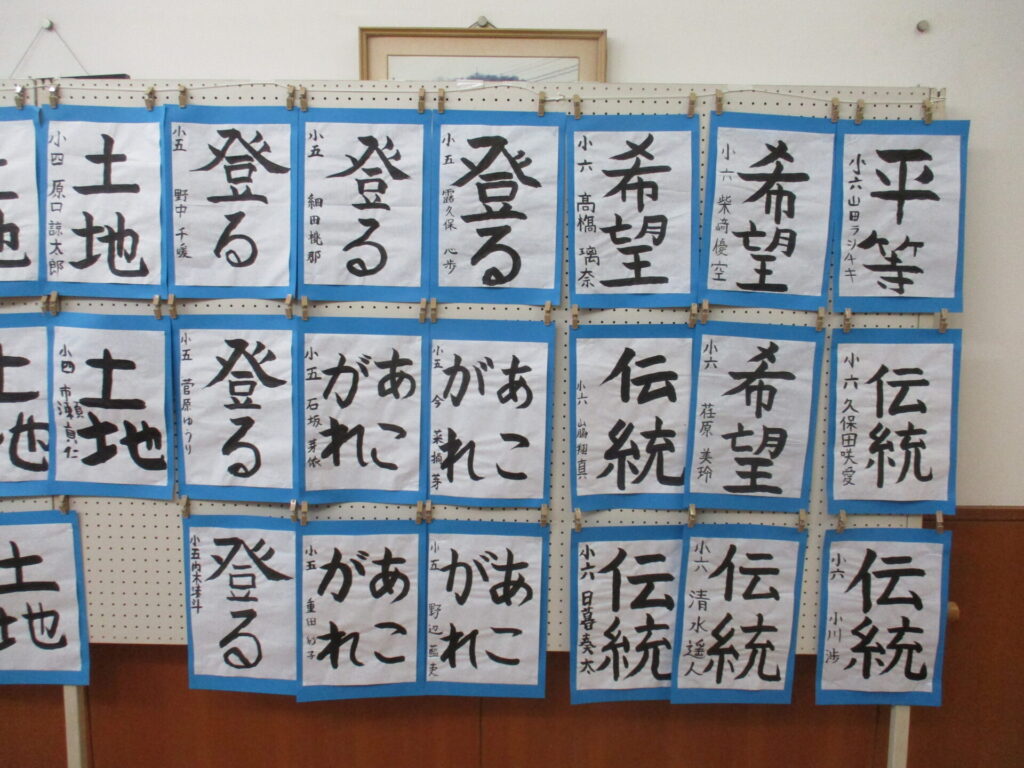 平等
小六 山田
希望
小六 柴﨑 優空
希望
小六 髙橋 璃奈
登る
小五 露久保 心歩
登る
小五 細田
登る
小五 野中 千暖
土地
小四 原口 諒太郎
伝統
小六 久保田咲愛
希望
小六 荏原 美玲
伝統
小六
あこ
がれ
小五 今
あこ
がれ
小五 石坂 芽依
登る
小五 菅原ゆうり
土地
小四 市瀬真仁
土地
伝統
小六 小川 渉
伝統
小六 清水 遥人
伝統
小六 日暮奏太
あこ
がれ
小五 野辺
あこ
がれ
小五 重田
登る
小五
土地